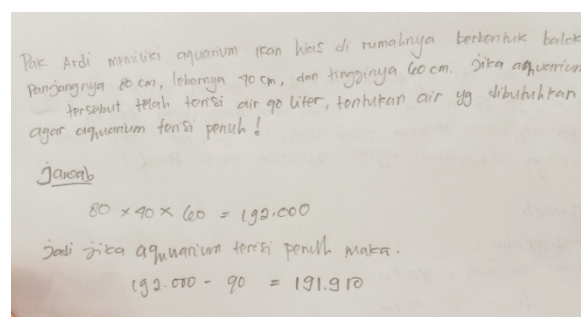 Pak Ardi memiliki aquarium ikan hias di rumahnya berbentuk balok
panjangnya 80 cm, lebarnya 40 cm, dan tingginya 60 cm. Jika aquarium
tersebut telah terisi air 90 liter, tentukan air yg dibutuhkan
agar aquarium terisi penuh!
Jawab
80 × 40 × 60 = 192.000
jadi jika aquarium terisi penuh maka.
192.000 - 90 = 191.910